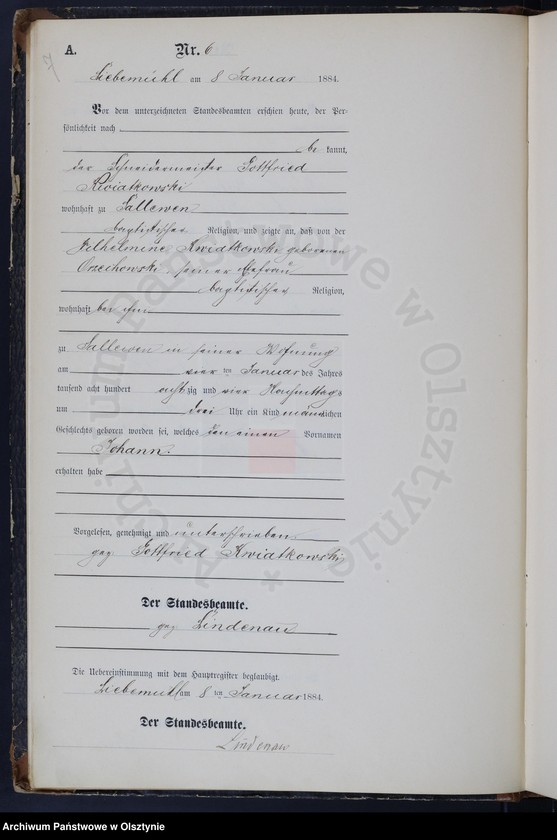 7
A. Nr. 6
Liebemühl am 8 Januar 1884.
Vor dem unterzeichneten Standesbeamten erschien heute, der Per-
sönlichkeit nach
be kannt,
der Schneidermeister Gottfried
Kwiatkowski
wohnhaft zu Sallewen
baptistischer Religion, und zeigte an, daß von der
Wilhelmine Kwiatkowski geborenen
Orzechowski seiner Ehefrau
baptistischer Religion,
wohnhaft bei ihm
zu Sallewen in seiner Wohnung
am vier ten Januar des Jahres
tausend acht hundert achtzig und vier Nachmittags
um drei Uhr ein Kind männlichen
Geschlechts geboren worden sei, welches den einen Vornamen
Johann.
erhalten habe
Vorgelesen, genehmigt und unterschrieben
gez Gottfried Kwiatkowski
Der Standesbeamte.
gez Lindenau
Die Uebereinstimmung mit dem Hauptregister beglaubigt.
Liebemühl am 8 ten Januar 1884.
Der Standesbeamte.
Lindenau
Archiwum Państwowe w Olsztynie *
Archiwum Państwowe w Olsztynie